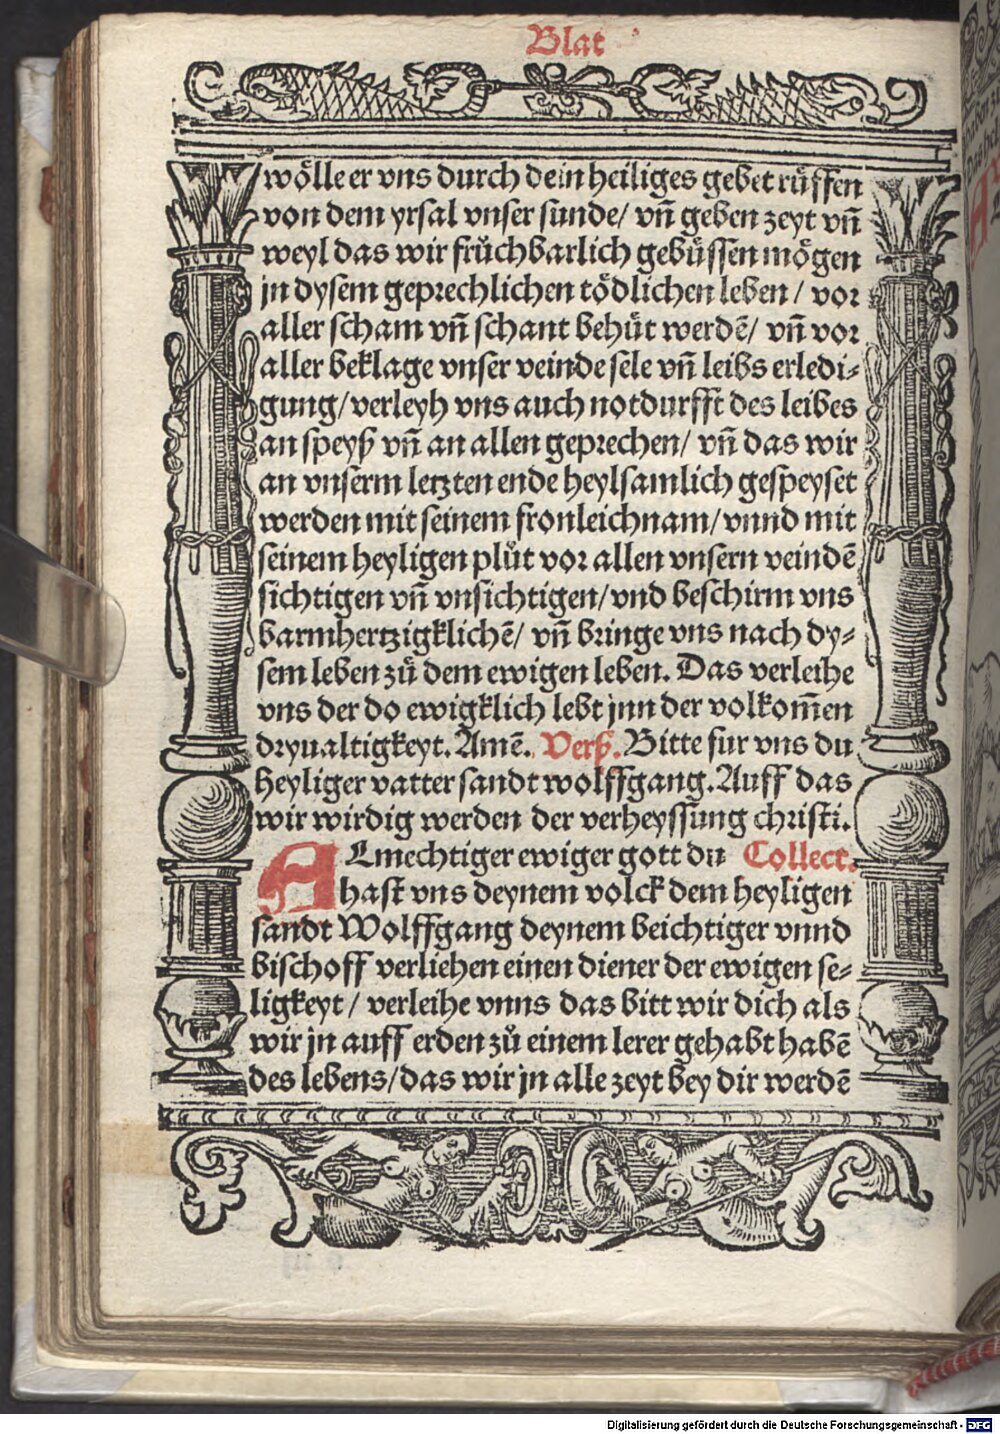 Blat
wölle er vns durch dein heiliges gebet růffen
von dem yrsal vnser sunde/ vñ geben zeyt vñ
weyl das wir frůchbarlich gebůssen mögen
jn dysem geprechlichen tödlichen leben / vor
aller scham vñ schant behůt werdē/ vñ vor
aller beklage vnser veinde sele vñ leibs erledi⸗
gung/verleyh vns auch notdurfft des leibes
an speyß vñ an allen geprechen/ vñ das wir
an vnserm letzten ende heylsamlich gespeyset
werden mit seinem fronleichnam/vnnd mit
seinem heyligen plůt vor allen vnsern veindē
sichtigen vñ vnsichtigen/vnd beschirm vns
barmhertzigklichē/ vñ bringe vns nach dy⸗
sem leben zů dem ewigen leben. Das verleihe
vns der do ewigklich lebt jnn der volkom̄en
dryualtigkeyt. Amē. Verß. Bitte fur vns du
heyliger vatter sandt wolffgang. Auff das
wir wirdig werden der verheyssung christi.
ALmechtiger ewiger gott du Collect.
hast vns deynem volck dem heyligen
sandt Wolffgang deynem beichtiger vnnd
bischoff verliehen einen diener der ewigen se⸗
ligkeyt / verleihe vnns das bitt wir dich als
wir jn auff erden zů einem lerer gehabt habē
des lebens/das wir jn alle zeyt bey dir werdē
Digitalisierung gefördert durch die Deutsche Forschungsgemeinschaft - DFG